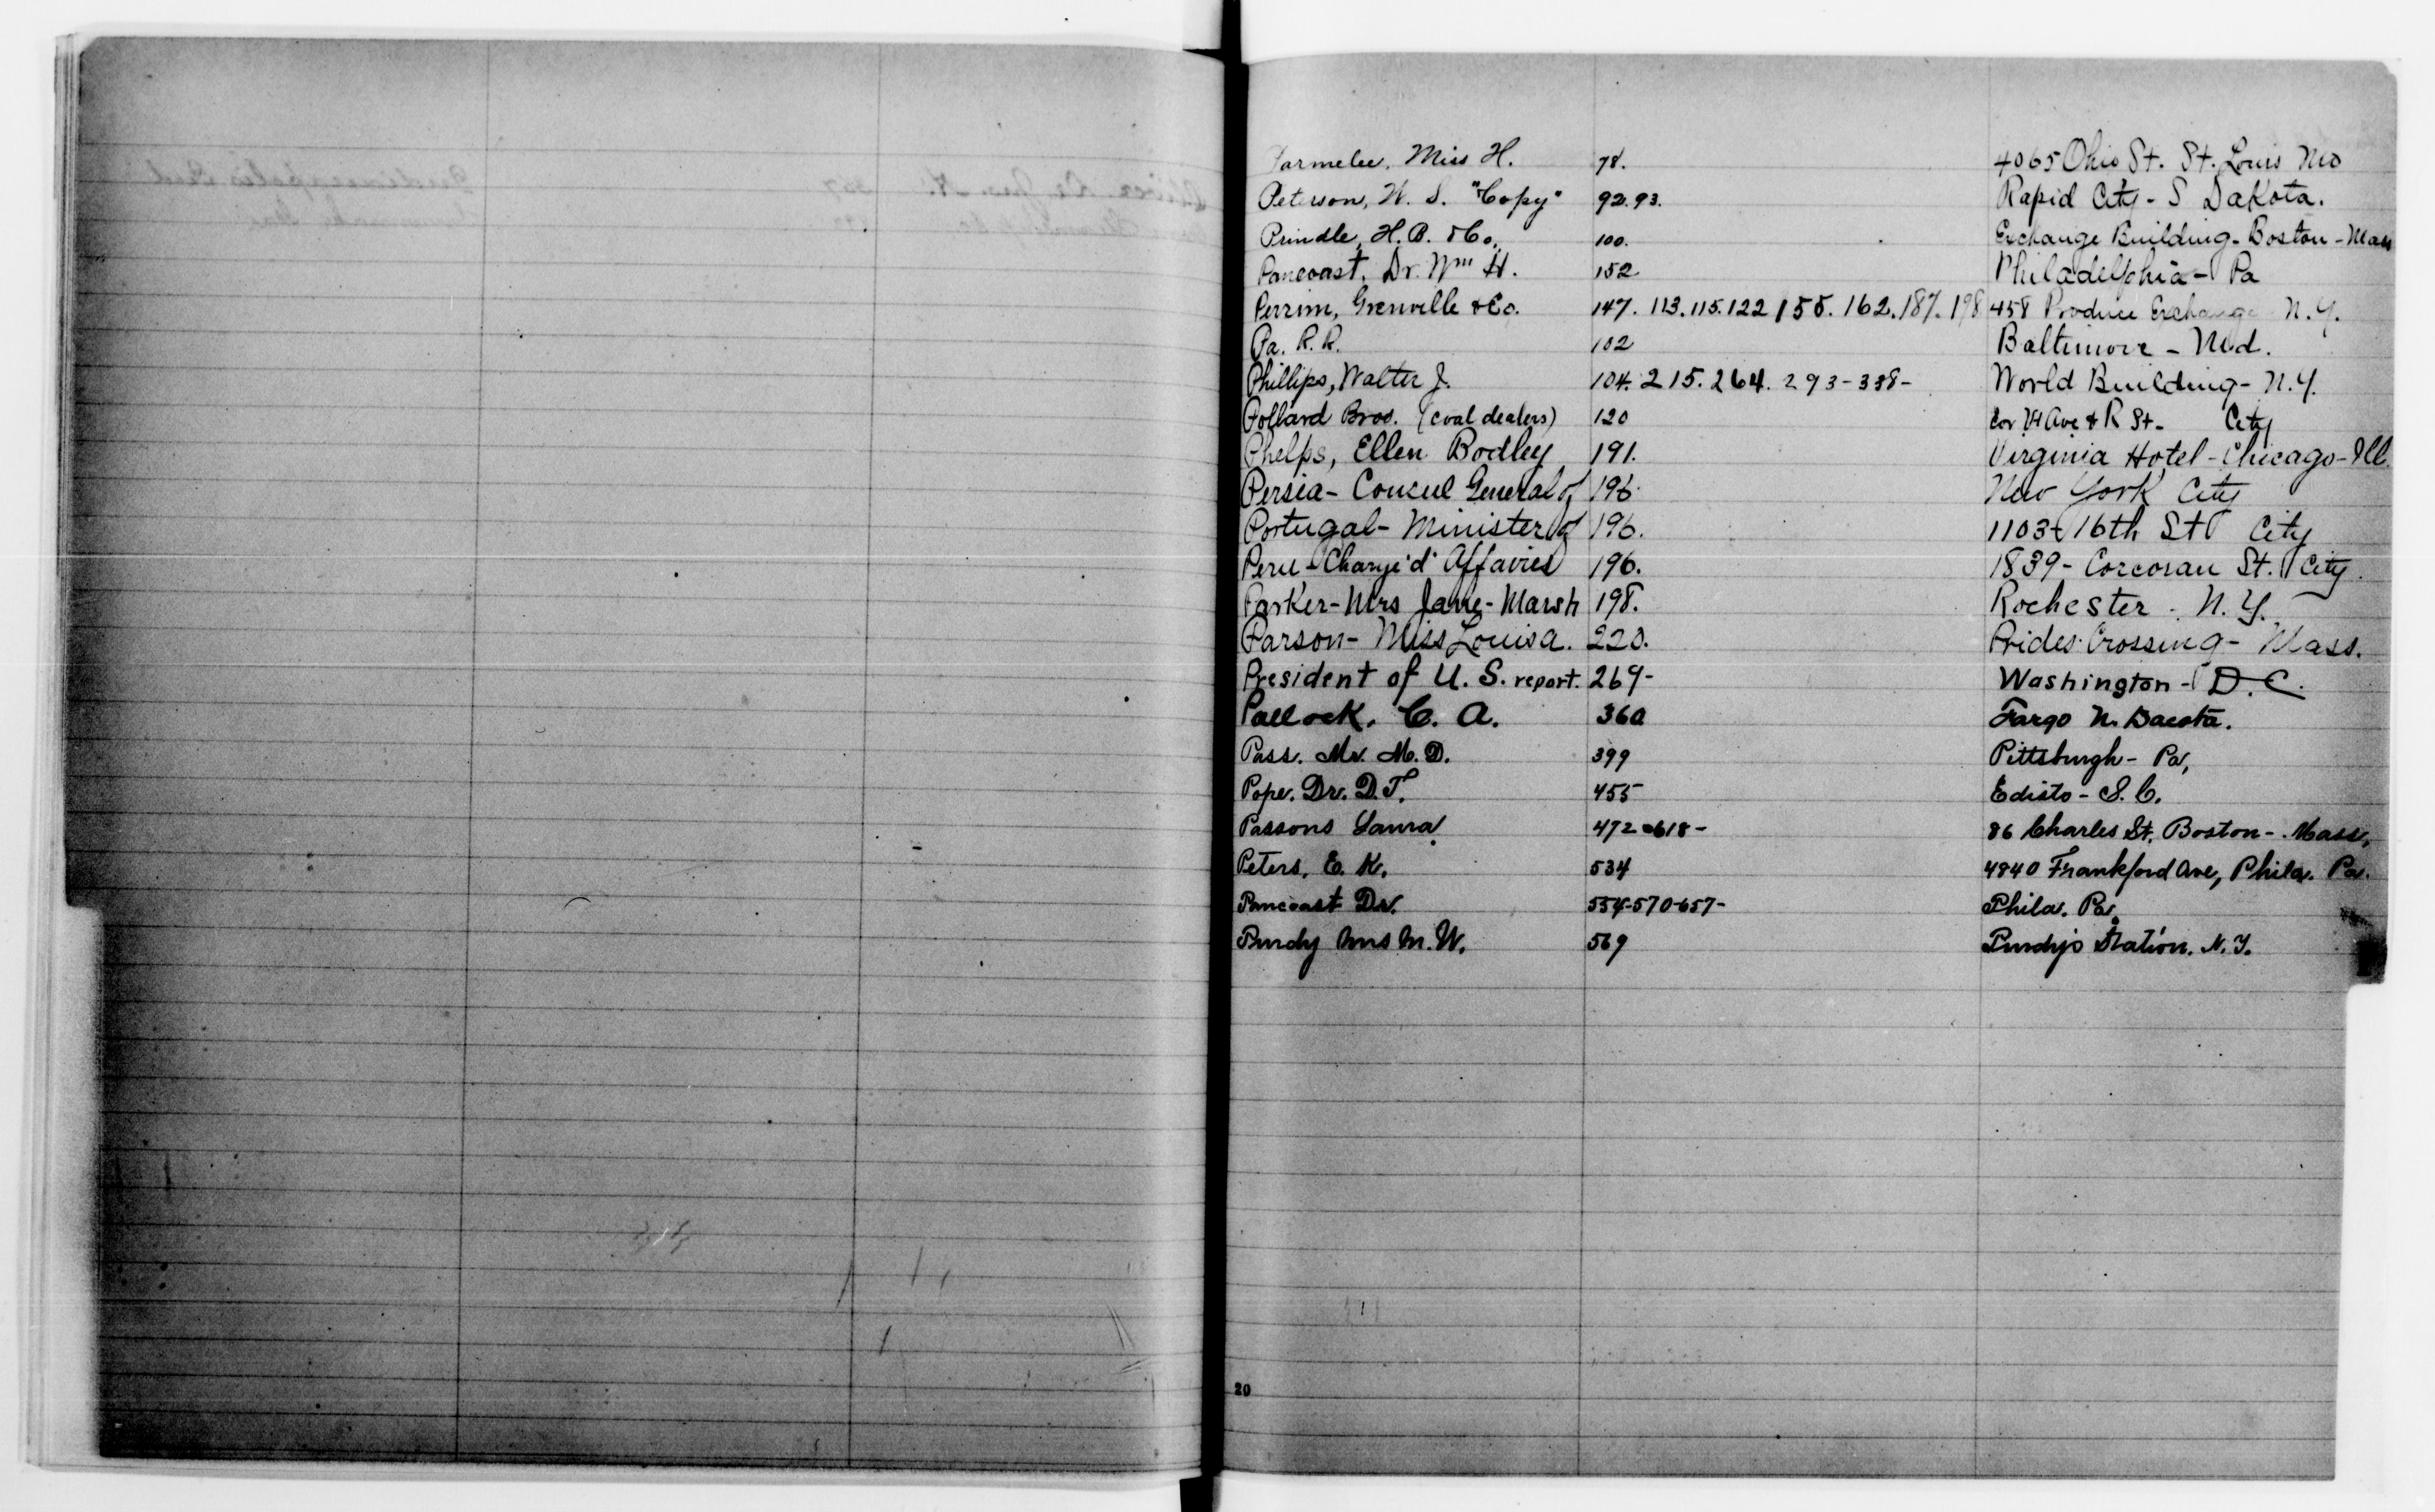 Parmelee, Miss H. 78. 4065 Ohio St. St. Louis Mo
Peterson, W. S. "Copy" 92.93. Rapid City - S Dakota.
Prindle, H. B. & Co. 100. Exchange Building - Boston - Mass
Pancoast, Dr. Wm H. 152 Philadelphia - Pa
Perrin, Grenville & Co. 147. 113. 115. 122 155. 162. 187. 198 458 Produce Exchange N.Y.
Pa. R. R. 102 Baltimore - Md.
Phillips, Walter J. 104. 215. 264. 293 - 338 - World Building - N.Y.
Pollard Bros. (coal dealers) 120 Cor. Vt Ave & R St - City
Phelps, Ellen Bodley 191. Virginia Hotel - Chicago - Ill.
Persia - Consul General of 196. New York City
Portugal - Minister of 196. 1103 - 16th St City
Peru - Charge'd' Affairies 196. 1839 - Corcoran St. City.
Parker - Mrs Jane - Marsh 198. Rochester . N. Y.
Parson - Miss Louisa. 220. Prides Crossing - Mass.
President of U. S. report. 269 - Washington - D. C.
Pollock. C. A. 360 Fargo N. Dacota.
Pass. Mr. M. D. 399 Pittsburgh - Pa,
Pope. Dr. D. T. 455 Edisto - S. C.
Passons Laura 472 - 618 - 86 Charles St. Boston - Mass,
Peters, E. K. 534 4840 Frankford Ave, Phila. Pa.
Pancoast Dr. 554-570-657- Phila. Pa.
Purdy Mrs M. W. 569 Purdy's Station. N. Y.
20